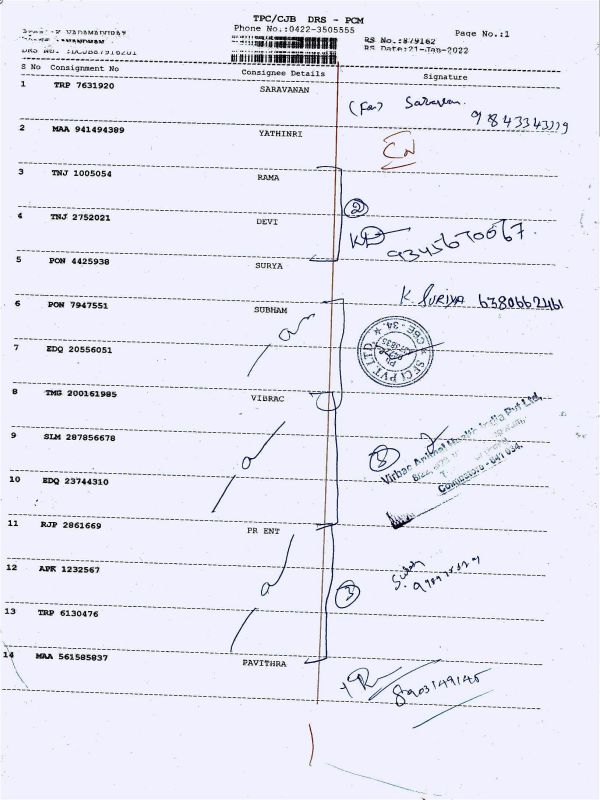 TPC/CJB DRS - PCM
Phone No.:0422-3505555
Page No.:1
RS No.:879162
RS Date:21-Jan-2022
S No Consignment No Consignee Details Signature
1 TRP 7631920 SARAVANAN
(For) Saravan.
9843343339
2 MAA 941494389 YATHINRI
CN
3 TNJ 1005054 RAMA
②
4 TNJ 2752021 DEVI
9345670067.
5 PON 4425938 SURYA
K SURIYA 6380662461
6 PON 7947551 SUBHAM
SFCI PVT LTD
CBE - 34
7 EDQ 20556051
8 TMG 200161985 VIBRAC
Virbac Animal Health India Pvt Ltd,
9 SLM 287856678
Coimbatore - 641 034.
10 EDQ 23744310
11 RJP 2861669 PR ENT
12 APK 1232567
③
13 TRP 6130476
14 MAA 561585837 PAVITHRA
8903149145